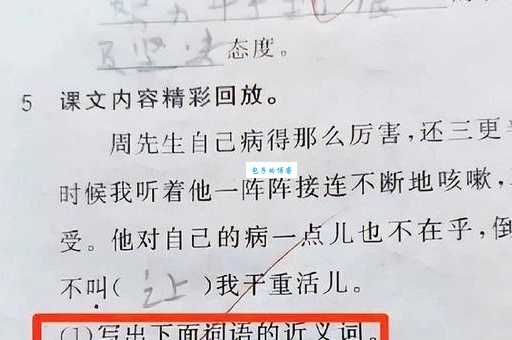 态度。
5 课文内容精彩回放。
周先生自己病得那么厉害,还三更半
包多的博客
时候我听着他一阵阵接连不断地咳嗽,
受。他对自己的病一点儿也不在乎,倒
不叫( 让 )我干重活儿。
(1)写出下面词语的近义词。